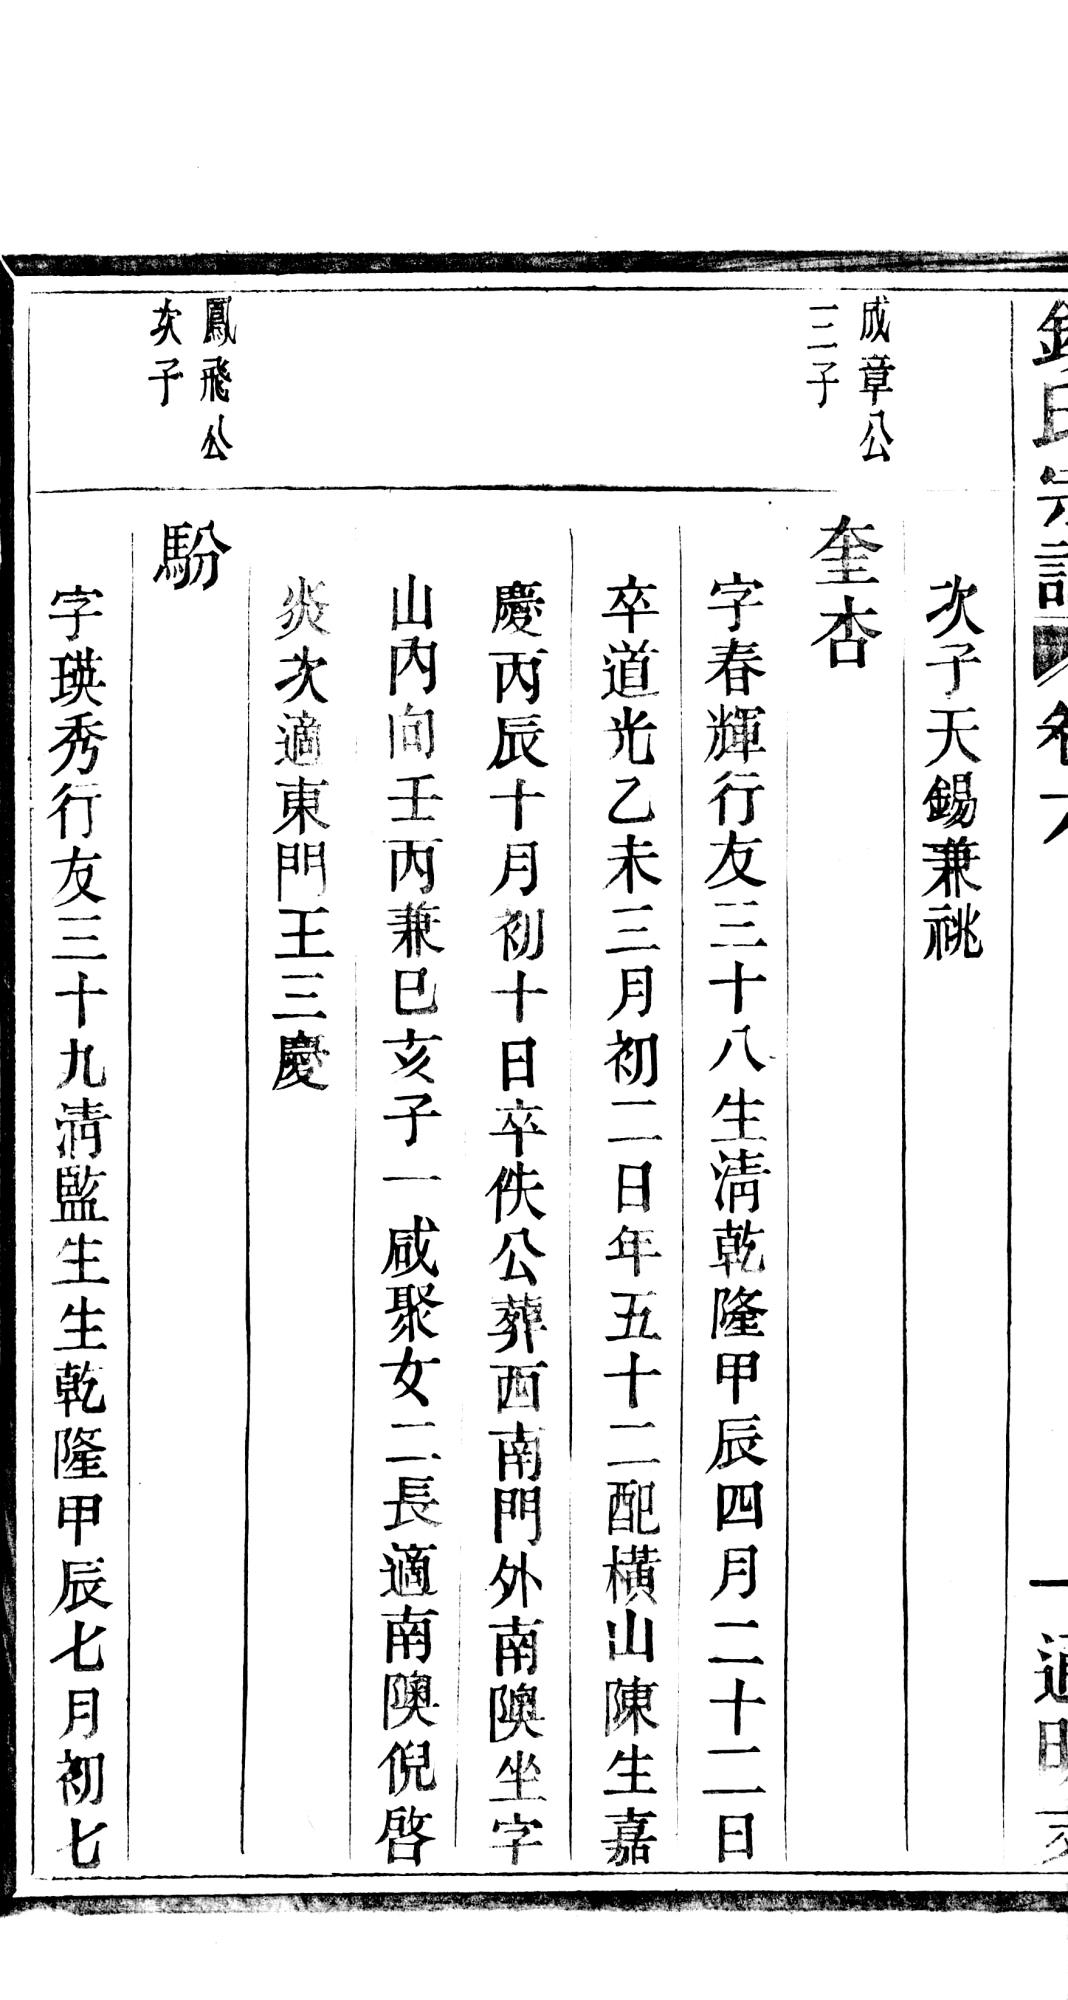 氏宗譜 卷六 一 通明支
次子天錫兼祧
成章公
三子
奎杏
字春輝行友三十八生清乾隆甲辰四月二十二日
卒道光乙未三月初二日年五十二配橫山陳生嘉
慶丙辰十月初十日卒佚公葬西南門外南隩坐字
山內向壬丙兼巳亥子一咸聚女二長適南隩倪啓
炎次適東門王三慶
鳳飛公
次子
馚
字瑛秀行友三十九清監生生乾隆甲辰七月初七